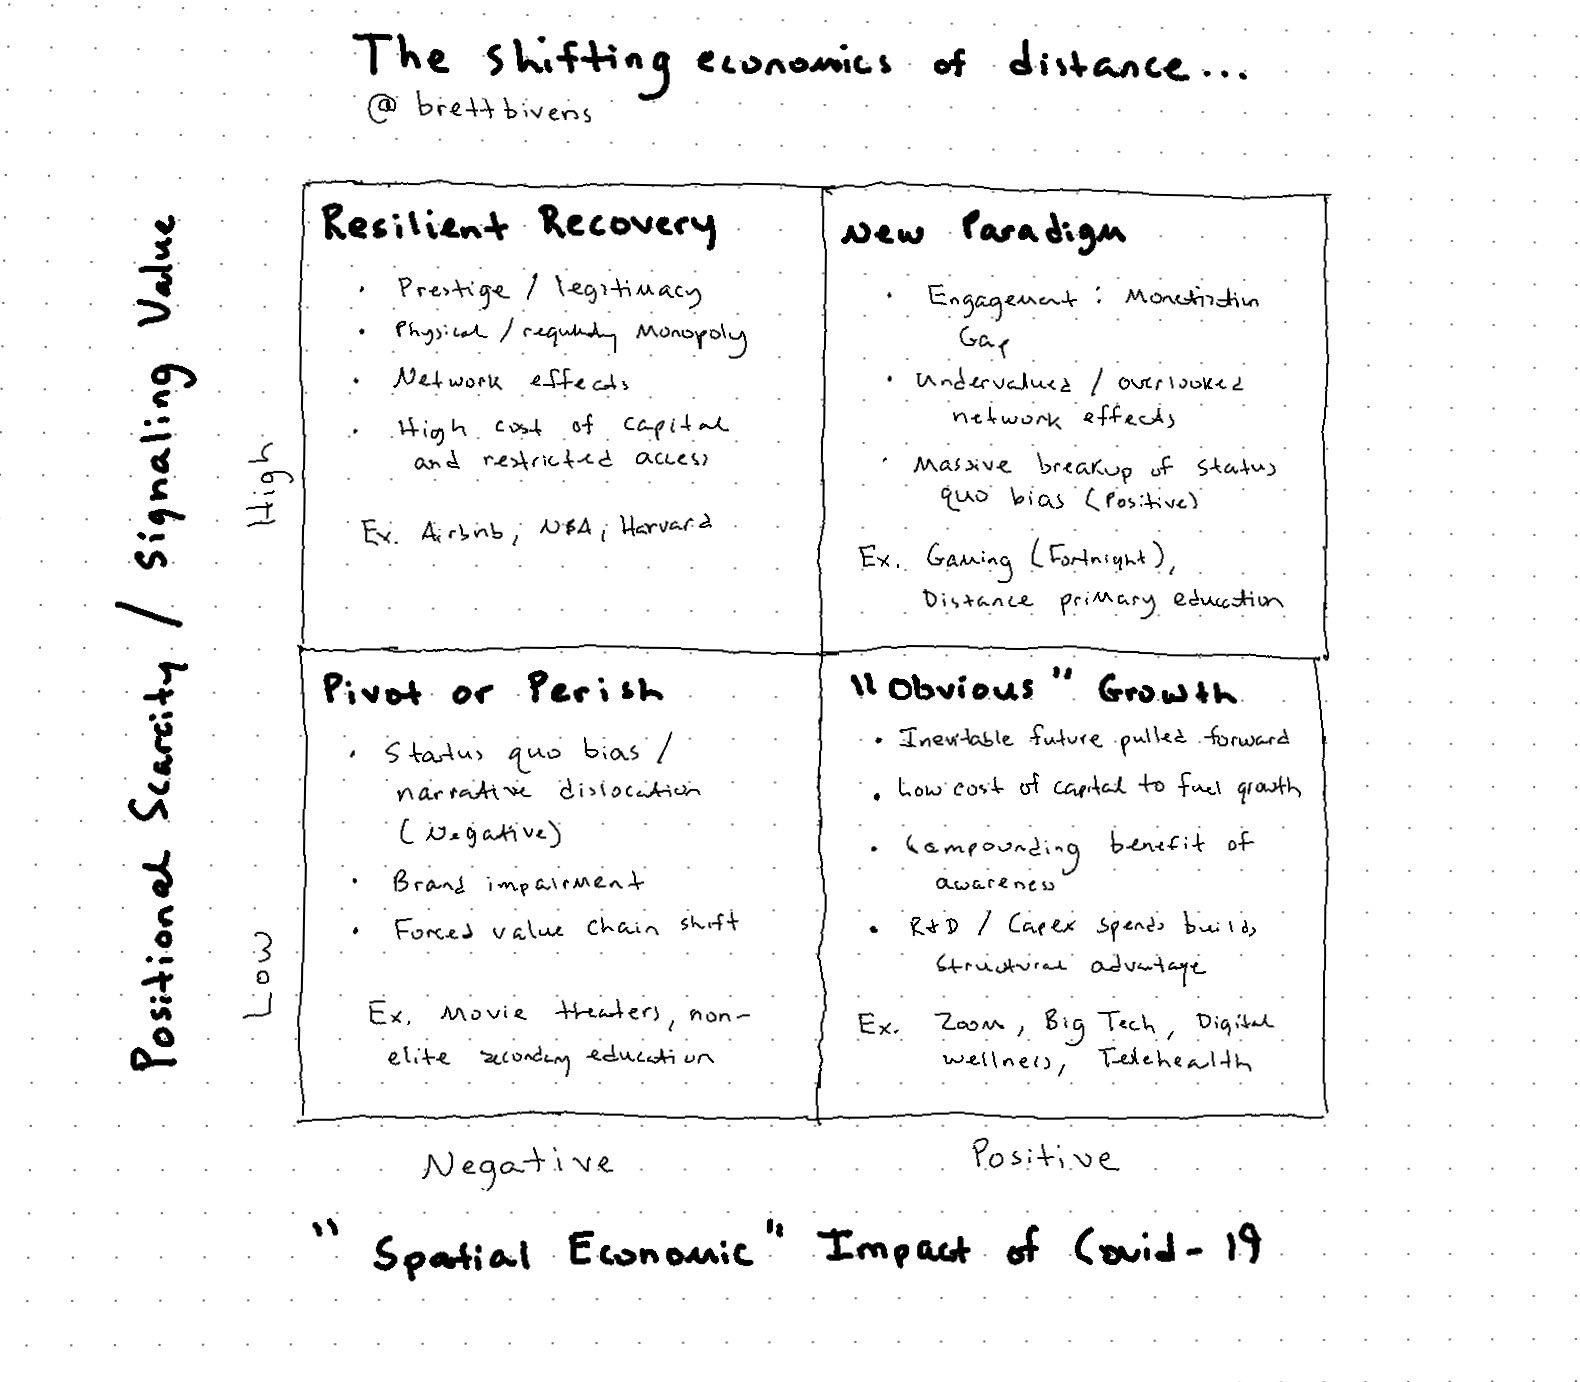 The shifting economics of distance...
@brettbivens
Positional Scarcity / Signaling Value
High
Low
Resilient Recovery
• Prestige / legitimacy
• Physical / regulatory Monopoly
• Network effects
• High cost of capital
and restricted access
Ex. Airbnb, NBA, Harvard
New Paradigm
• Engagement : Monetization
Gap
• Undervalued / overlooked
network effects
• Massive breakup of status
quo bias (Positive)
Ex. Gaming (Fortnight),
Distance primary education
Pivot or Perish
• Status quo bias /
narrative dislocation
(Negative)
• Brand impairment
• Forced value chain shift
Ex. Movie theaters, non-
elite secondary education
"Obvious" Growth
• Inevitable future pulled forward
• Low cost of capital to fuel growth
• Compounding benefit of
awareness
• R&D / Capex spends builds
structural advantage
Ex. Zoom, Big Tech, Digital
wellness, Telehealth
Negative
Positive
"Spatial Economic" Impact of Covid-19